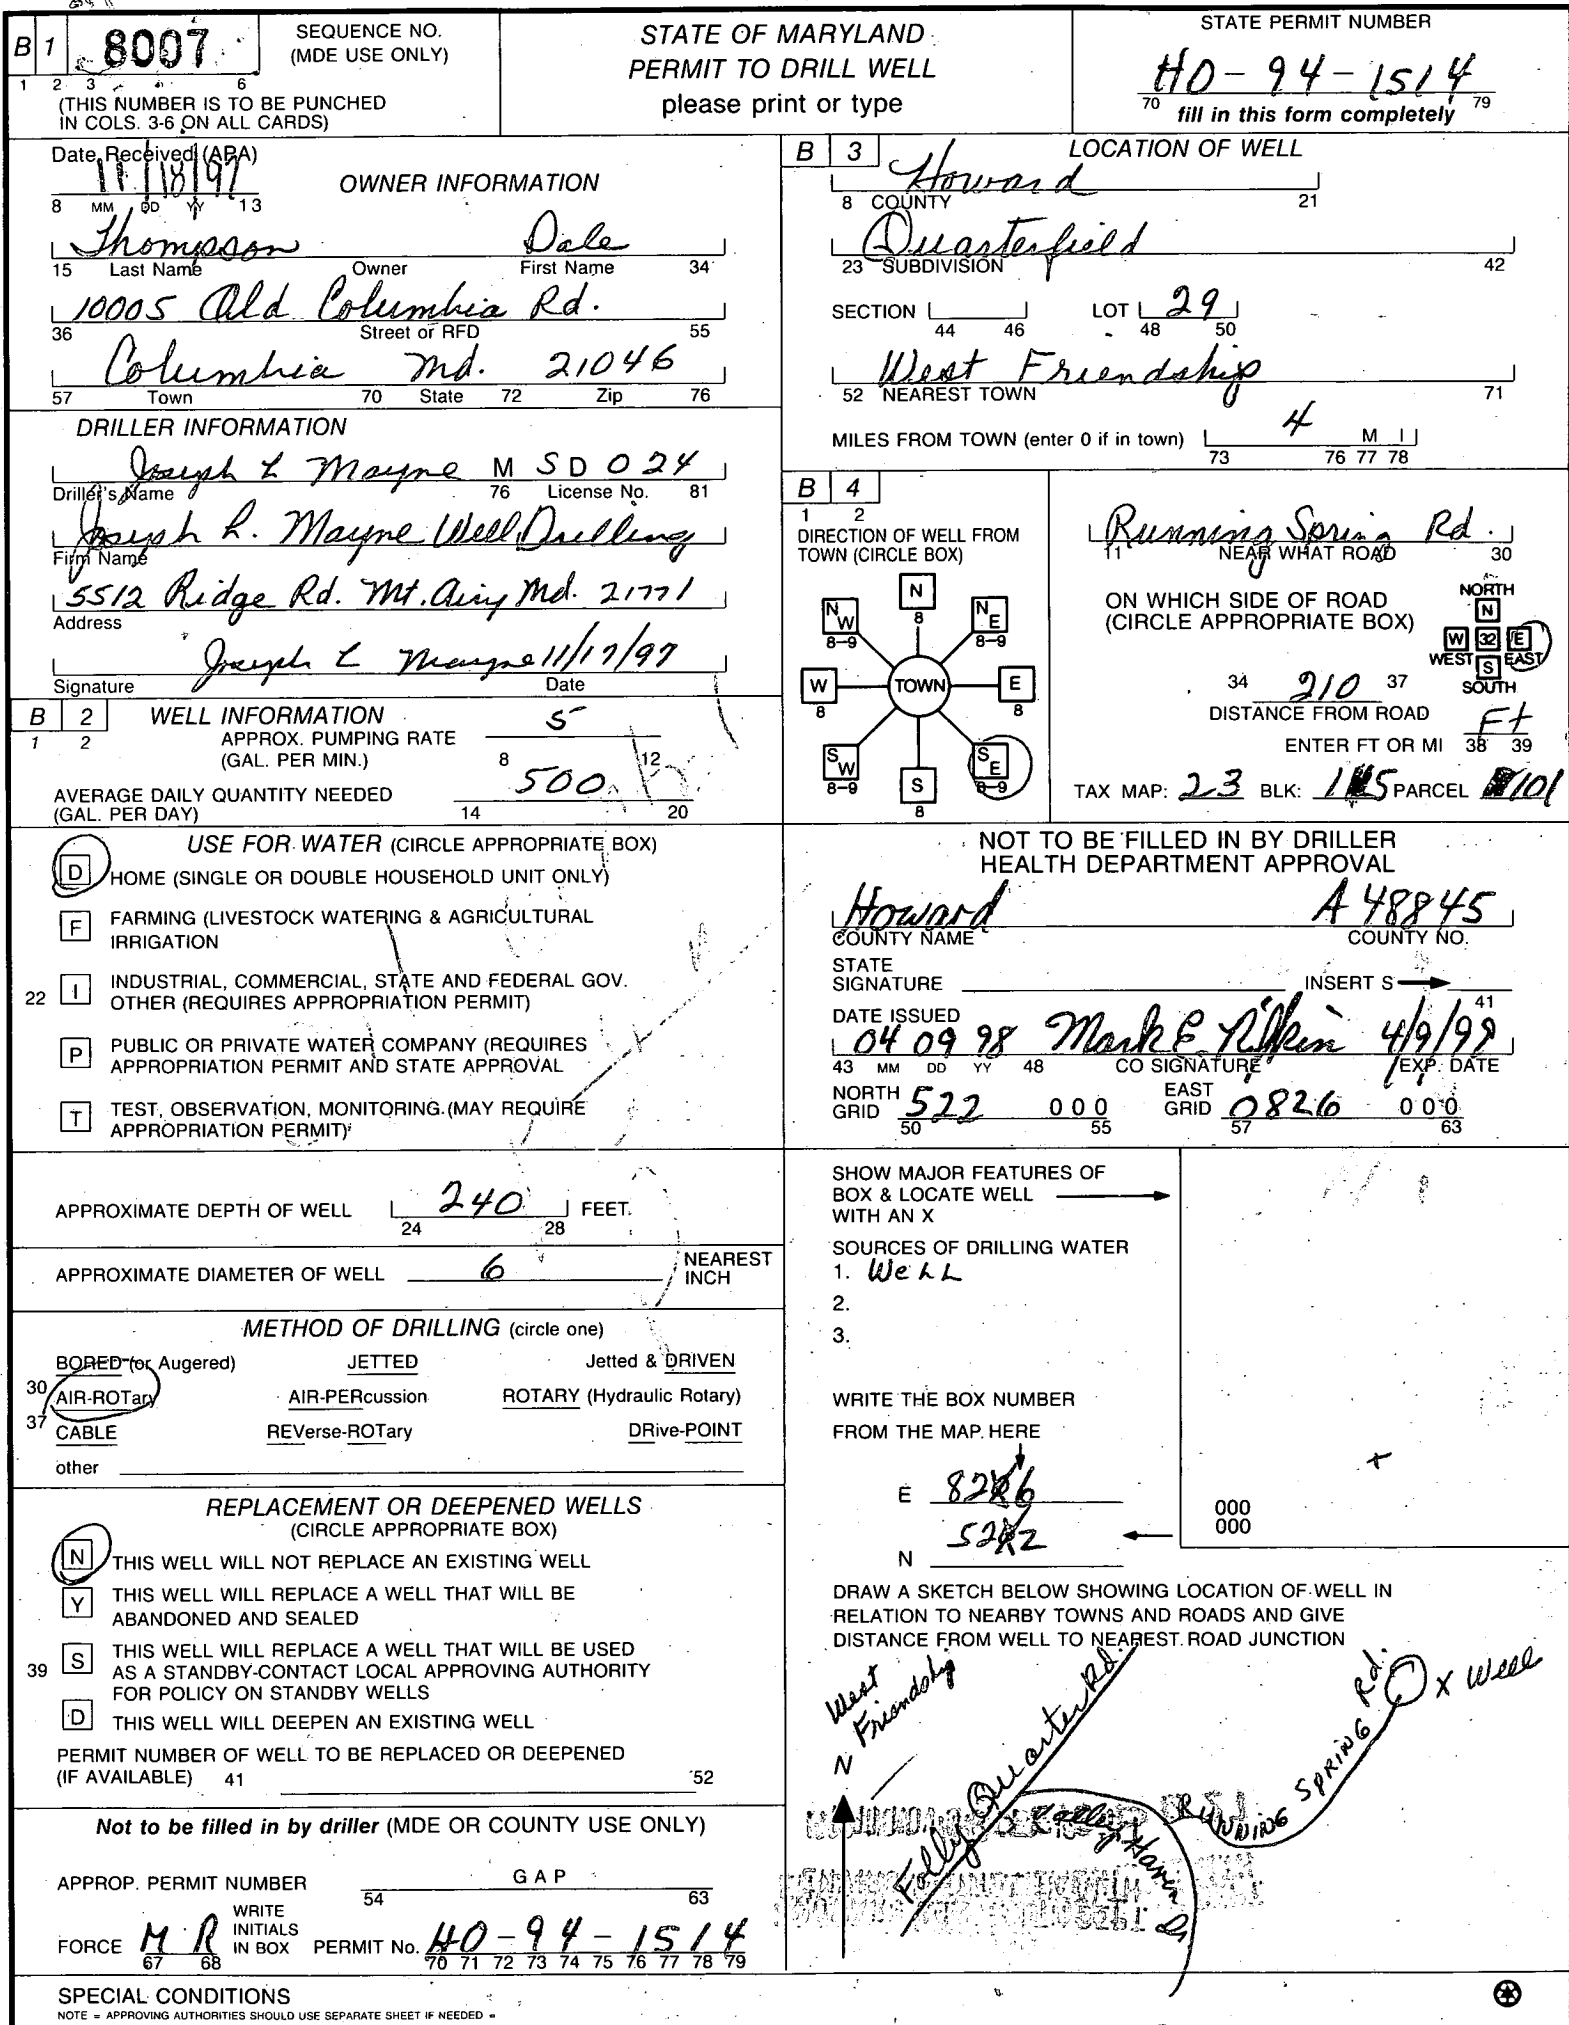 B 1 8007 SEQUENCE NO. (MDE USE ONLY)
1 2 3 6
(THIS NUMBER IS TO BE PUNCHED
IN COLS. 3-6 ON ALL CARDS)
STATE OF MARYLAND
PERMIT TO DRILL WELL
please print or type
STATE PERMIT NUMBER
HO-94-1514
70 79
fill in this form completely
Date Received (APA)
11 18 97
8 MM DD YY 13
OWNER INFORMATION
Thompson Dale
15 Last Name Owner First Name 34
10005 Old Columbia Rd.
36 Street or RFD 55
Columbia Md. 21046
57 Town 70 State 72 Zip 76
DRILLER INFORMATION
Joseph L Mayne M S D 0 24
Driller's Name 76 License No. 81
Joseph L. Mayne Well Drilling
Firm Name
5512 Ridge Rd. Mt. Airy Md. 21771
Address
Joseph L Mayne 11/17/97
Signature Date
B 2 WELL INFORMATION
1 2
APPROX. PUMPING RATE 5
(GAL. PER MIN.) 8 12
AVERAGE DAILY QUANTITY NEEDED 500
(GAL. PER DAY) 14 20
USE FOR WATER (CIRCLE APPROPRIATE BOX)
D HOME (SINGLE OR DOUBLE HOUSEHOLD UNIT ONLY)
F FARMING (LIVESTOCK WATERING & AGRICULTURAL
IRRIGATION
22 I INDUSTRIAL, COMMERCIAL, STATE AND FEDERAL GOV.
OTHER (REQUIRES APPROPRIATION PERMIT)
P PUBLIC OR PRIVATE WATER COMPANY (REQUIRES
APPROPRIATION PERMIT AND STATE APPROVAL
T TEST, OBSERVATION, MONITORING (MAY REQUIRE
APPROPRIATION PERMIT)
APPROXIMATE DEPTH OF WELL 240 FEET.
24 28
APPROXIMATE DIAMETER OF WELL 6 NEAREST
INCH
METHOD OF DRILLING (circle one)
BORED (or Augered) JETTED Jetted & DRIVEN
30 AIR-ROTary AIR-PERcussion ROTARY (Hydraulic Rotary)
37 CABLE REVerse-ROTary DRive-POINT
other
REPLACEMENT OR DEEPENED WELLS
(CIRCLE APPROPRIATE BOX)
N THIS WELL WILL NOT REPLACE AN EXISTING WELL
Y THIS WELL WILL REPLACE A WELL THAT WILL BE
ABANDONED AND SEALED
39 S THIS WELL WILL REPLACE A WELL THAT WILL BE USED
AS A STANDBY-CONTACT LOCAL APPROVING AUTHORITY
FOR POLICY ON STANDBY WELLS
D THIS WELL WILL DEEPEN AN EXISTING WELL
PERMIT NUMBER OF WELL TO BE REPLACED OR DEEPENED
(IF AVAILABLE) 41 52
Not to be filled in by driller (MDE OR COUNTY USE ONLY)
APPROP. PERMIT NUMBER G A P
54 63
FORCE M R WRITE INITIALS IN BOX PERMIT No. HO-94-1514
67 68 70 71 72 73 74 75 76 77 78 79
SPECIAL CONDITIONS
NOTE = APPROVING AUTHORITIES SHOULD USE SEPARATE SHEET IF NEEDED =
B 3 LOCATION OF WELL
Howard
8 COUNTY 21
Quarterfield
23 SUBDIVISION 42
SECTION LOT 29
44 46 48 50
West Friendship
52 NEAREST TOWN 71
MILES FROM TOWN (enter 0 if in town) 4 M I
73 76 77 78
B 4
1 2
DIRECTION OF WELL FROM
TOWN (CIRCLE BOX)
N
8
NW NE
8-9 8-9
W TOWN E
8 8
SW SE
8-9 8-9
S
8
Running Spring Rd.
11 NEAR WHAT ROAD 30
ON WHICH SIDE OF ROAD
(CIRCLE APPROPRIATE BOX)
NORTH
N
W 32 E
WEST EAST
S
SOUTH
34 210 37
DISTANCE FROM ROAD
Ft
ENTER FT OR MI 38 39
TAX MAP: 23 BLK: 15 PARCEL 101
NOT TO BE FILLED IN BY DRILLER
HEALTH DEPARTMENT APPROVAL
Howard A 48845
COUNTY NAME COUNTY NO.
STATE
SIGNATURE INSERT S
41
DATE ISSUED
04 09 98 Mark E. Rifkin 4/9/99
43 MM DD YY 48 CO SIGNATURE EXP. DATE
NORTH GRID 522 000 EAST GRID 0826 000
50 55 57 63
SHOW MAJOR FEATURES OF
BOX & LOCATE WELL
WITH AN X
SOURCES OF DRILLING WATER
1. WeLL
2.
3.
WRITE THE BOX NUMBER
FROM THE MAP HERE
E 826
N 522
000
000
DRAW A SKETCH BELOW SHOWING LOCATION OF WELL IN
RELATION TO NEARBY TOWNS AND ROADS AND GIVE
DISTANCE FROM WELL TO NEAREST ROAD JUNCTION
West
Friendship
N
Folly Quarter Rd.
Haven Dr.
RUNNING SPRING Rd.
X Well